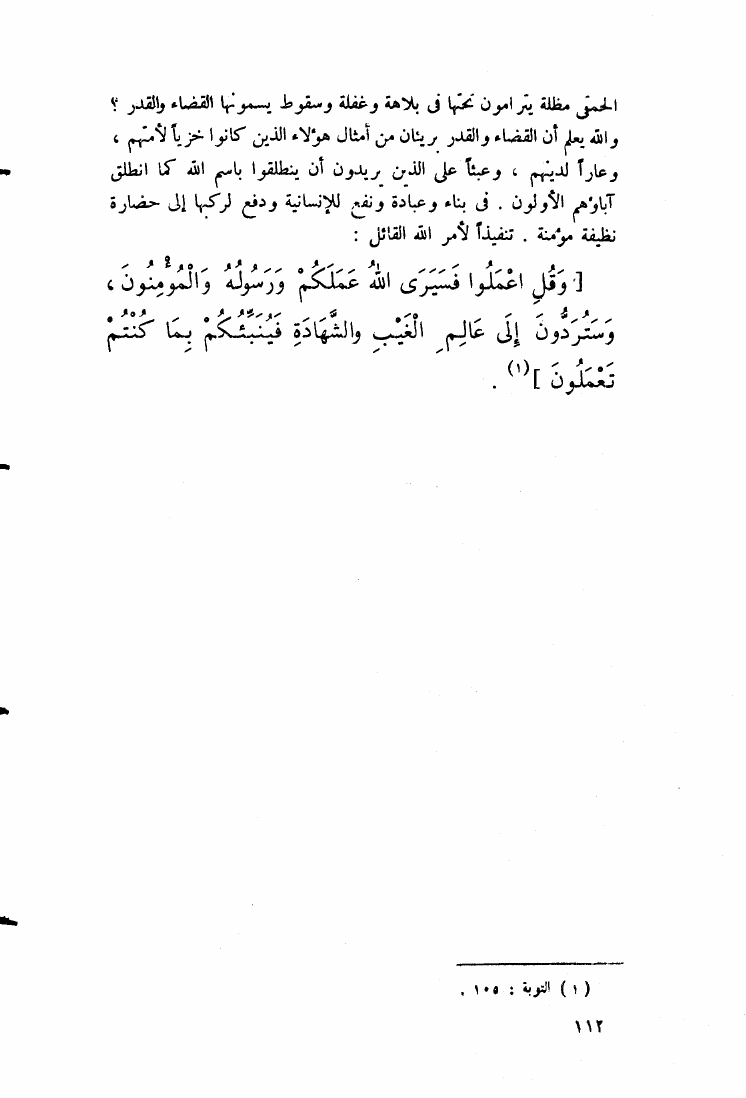 الحمقى مظلة يترامون تحتها فى بلاهة وغفلة وسقوط يسمونها القضاء والقدر ؟
والله يعلم أن القضاء والقدر بريئان من أمثال هؤلاء الذين كانوا خزياً لأمتهم ،
وعاراً لدينهم ، وعبئاً على الذين يريدون أن ينطلقوا باسم الله كما انطلق
آباؤهم الأولون . فى بناء وعبادة ونفع للإنسانية ودفع لركبها إلى حضارة
نظيفة مؤمنة . تنفيذاً لأمر الله القائل :
[ وَقُلِ اعْمَلُوا فَسَيَرَى اللهُ عَمَلَكُمْ وَرَسُولُهُ وَالْمُؤْمِنُونَ ،
وَسَتُرَدُّونَ إِلَى عَالِمِ الْغَيْبِ والشَّهَادَةِ فَيُنَبِّئُكُمْ بِمَا كُنْتُمْ
تَعْمَلُونَ ](١) .
(١) التوبة : ١٠٥ .
١١٢